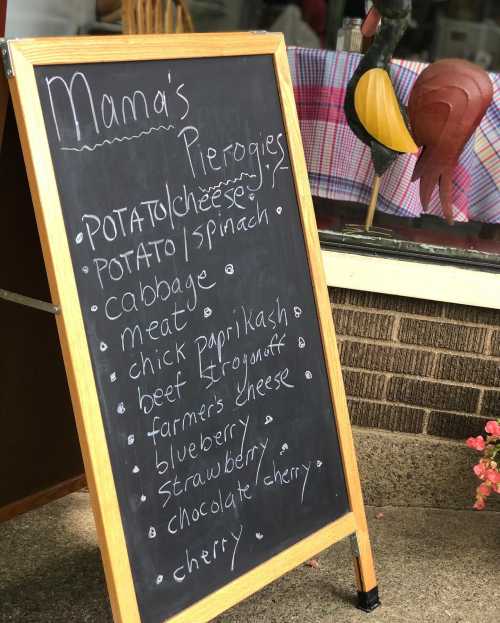 Mama's
Pierogies
• POTATO/cheese •
• POTATO/spinach •
• cabbage •
• meat •
• chick paprikash •
• beef strogonoff •
• farmer's cheese •
• blueberry •
• strawberry •
• chocolate cherry •
• cherry •